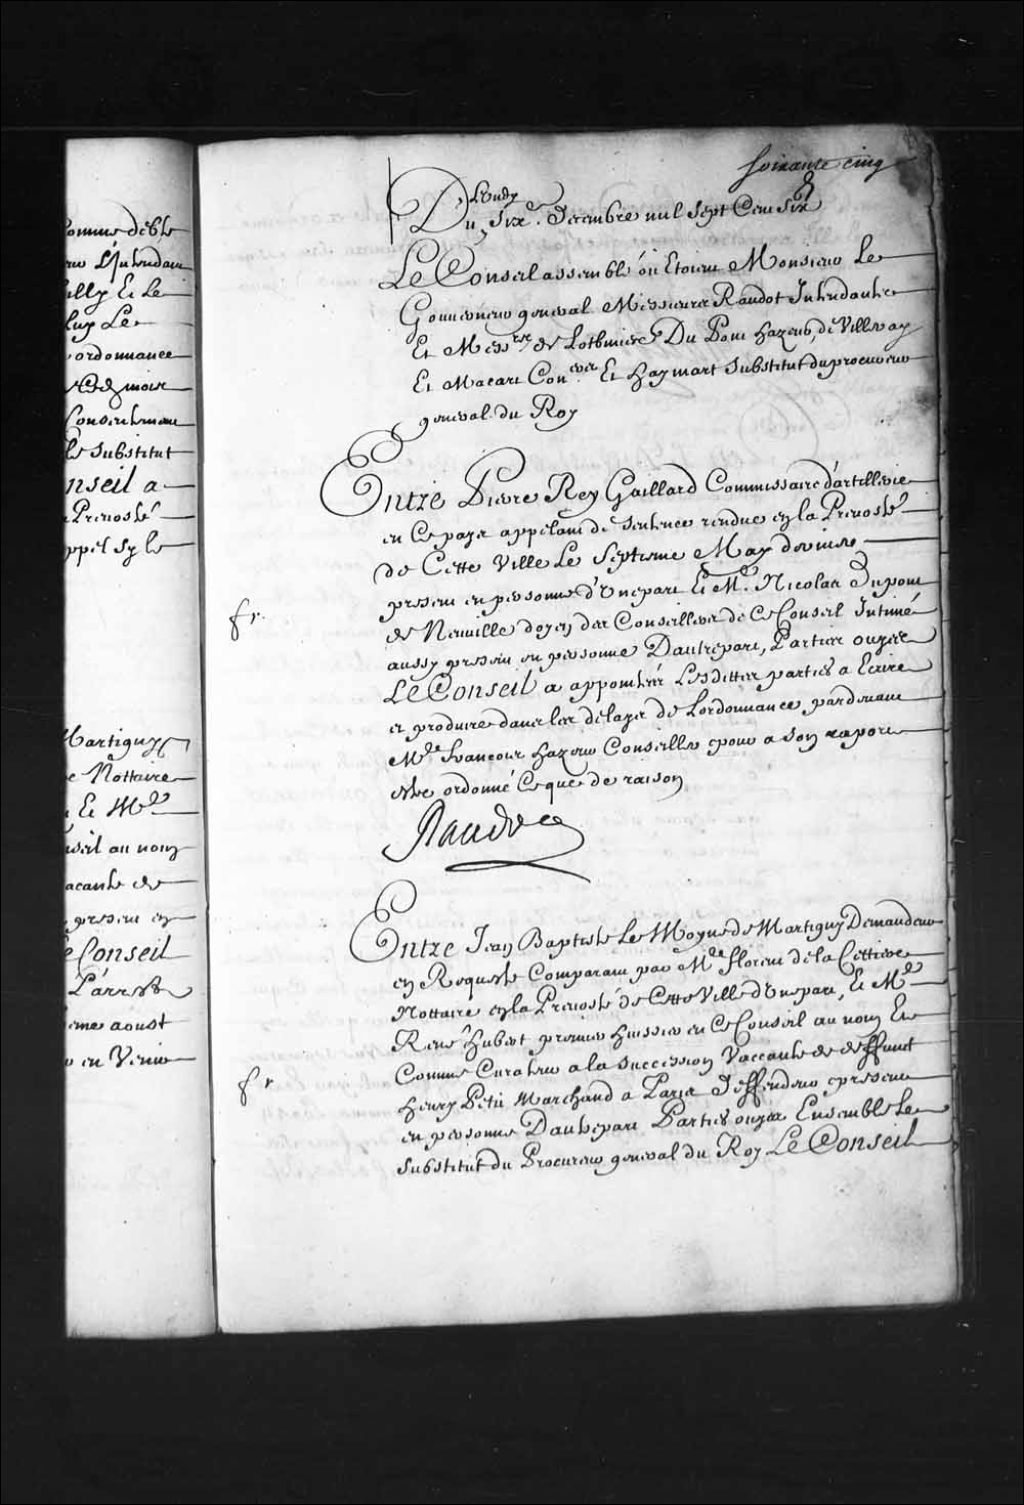 omme deble
L'Intendan
illy Et le
luy Le
ordonnance
Conseil
le substitut
nseil a
Prevosté
ppel sy le
Martigny
e Nottaire
Et Mr.
au nom
acante de
present en
e Conseil
L'arrest
eme aoust
en Venir
soixante cinq
Lundy
Du Six.e Decembre mil sept Cens six
Le Conseil assemblé où Etoient Monsieur Le
Gouverneur general Messieurs Raudot Intendants
Et Mess.rs de Lotbiniere Du Pont hazeur, de Villeray
Et Macart Con.ers Et haymart substitut du procureur
general du Roy
Entre Pierre Rey Gaillard Commissaire d'artillerie
en Ce pays appelant de sentence rendue en la Prevosté
de Cette Ville Le Septieme May dernier
present en personne d'Une part Et Me. Nicolas Dupont
de Neuville doyen des Conseillers de Ce Conseil Intimé
aussy present en personne D'autre part, Parties ouyes
Le Conseil a appointé Les dittes parties a Ecrire
et produire dans les delays de Lordonnance pardevant
Me. francois hazeur Conseiller pour a son raport
estre ordonné Ce que de raison
Raudot
fr.
Entre Jean Baptiste Le Moyne de Martigny Demandeur
en Requeste Comparant par Me. florent de la Cettiere
Nottaire en la Prevosté de Cette Ville d'Une part, Et Me.
René hubert premier huissier en Ce Conseil au nom Et
Comme Curateur a la succession Vaccante de deffunct
henry Petit Marchand a Paris Deffendeur present
en personne D'autre part Parties ouyes Ensemble Le
substitut du Procureur general du Roy Le Conseil
fr